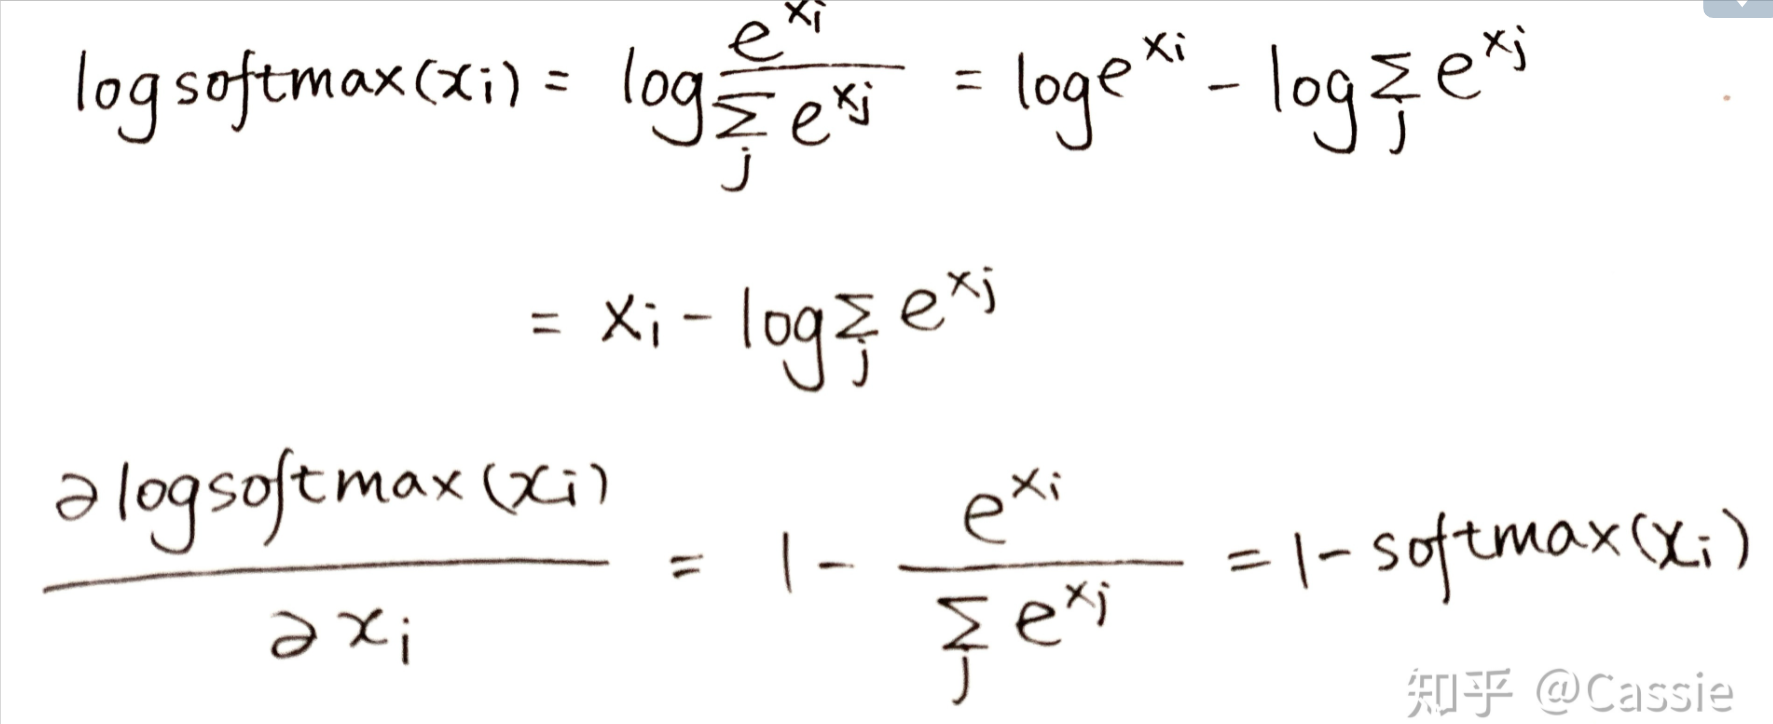 logsoftmax(xᵢ) = log e^{xᵢ} / ∑_j e^{x_j} = log e^{xᵢ} - log ∑_j e^{x_j}
= xᵢ - log ∑_j e^{x_j}
∂logsoftmax(xᵢ) / ∂xᵢ = 1 - e^{xᵢ} / ∑_j e^{x_j} = 1 - softmax(xᵢ)
知乎 @Cassie